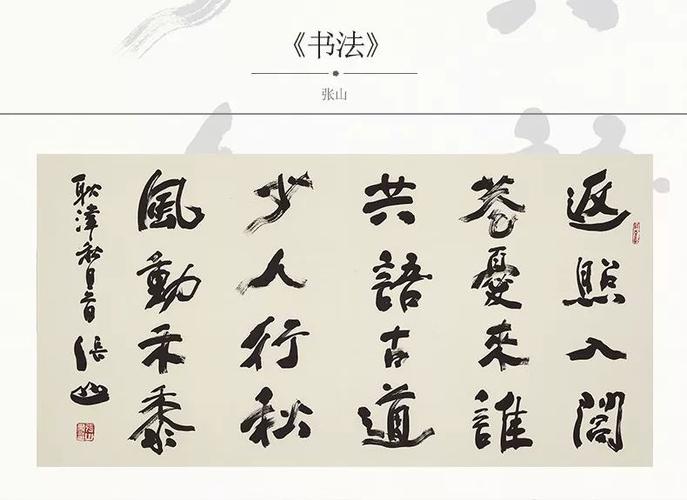 《书法》
张山
返照入閭
巷憂來誰
共語古道
少人行秋
風動禾黍
耿湋秋日 張山